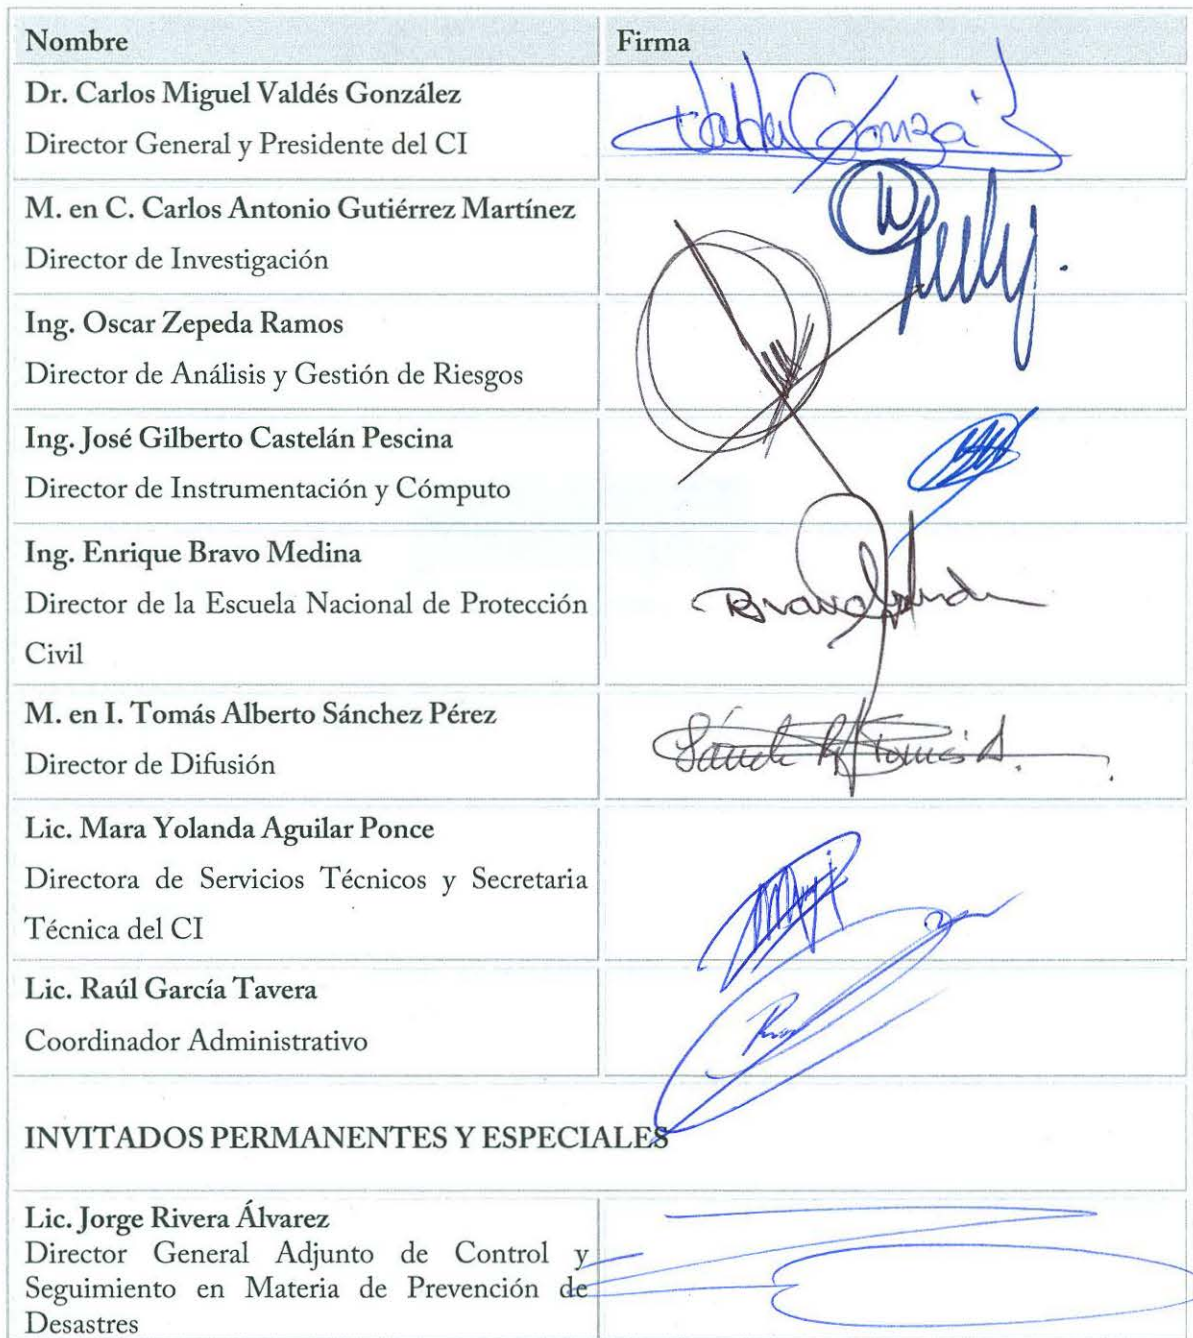 Nombre Firma
Dr. Carlos Miguel Valdés González
Director General y Presidente del CI
M. en C. Carlos Antonio Gutiérrez Martínez
Director de Investigación
Ing. Oscar Zepeda Ramos
Director de Análisis y Gestión de Riesgos
Ing. José Gilberto Castelán Pescina
Director de Instrumentación y Cómputo
Ing. Enrique Bravo Medina
Director de la Escuela Nacional de Protección
Civil
M. en I. Tomás Alberto Sánchez Pérez
Director de Difusión
Lic. Mara Yolanda Aguilar Ponce
Directora de Servicios Técnicos y Secretaria
Técnica del CI
Lic. Raúl García Tavera
Coordinador Administrativo
INVITADOS PERMANENTES Y ESPECIALES
Lic. Jorge Rivera Álvarez
Director General Adjunto de Control y
Seguimiento en Materia de Prevención de
Desastres